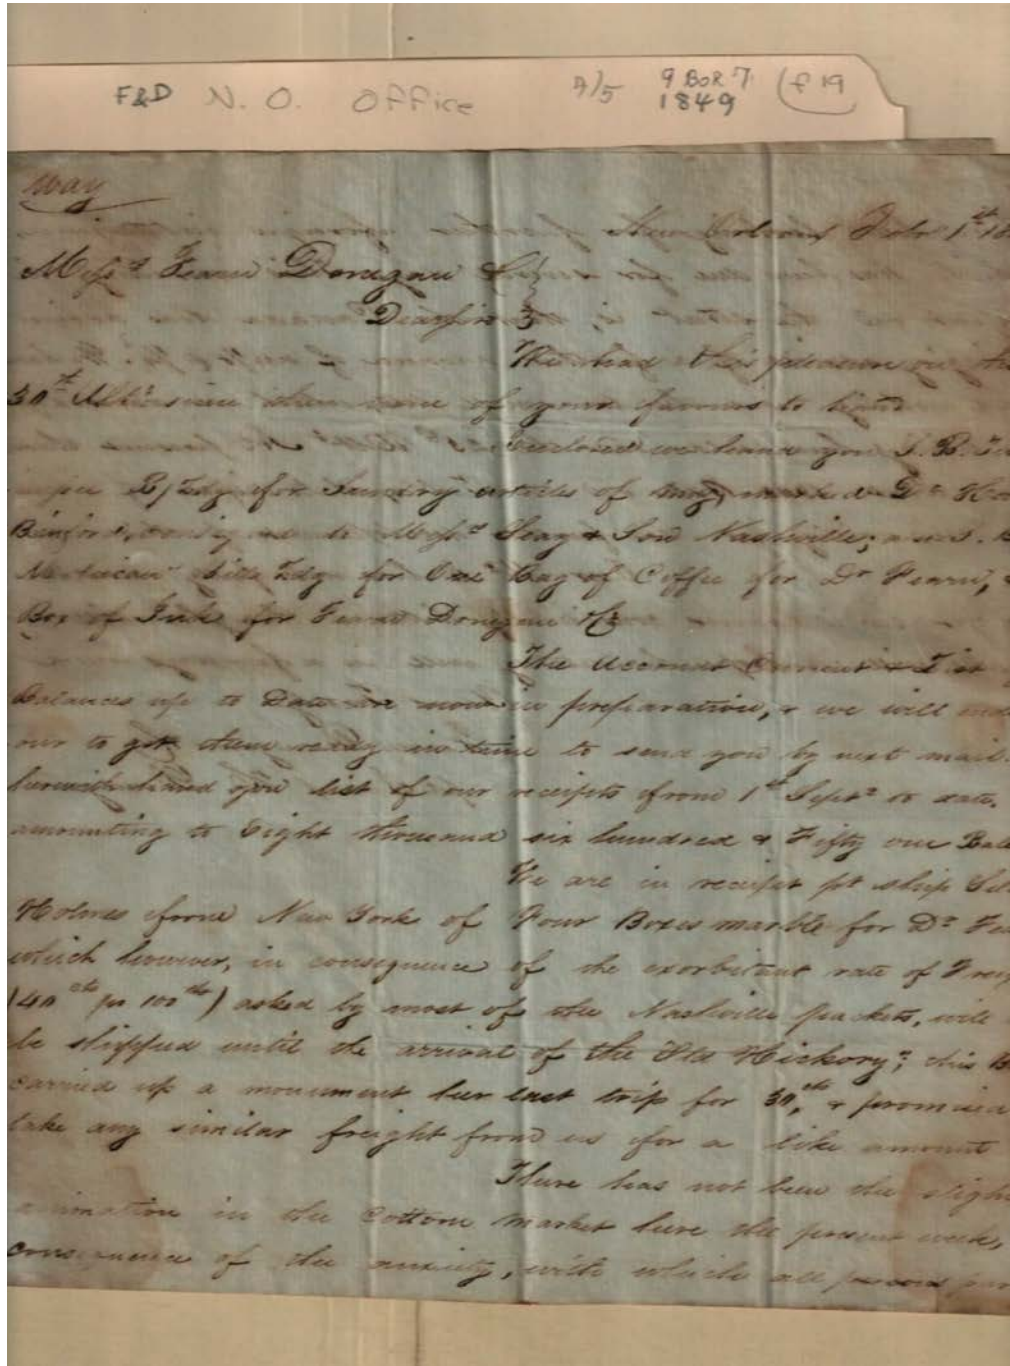 F&D N. O. Office 9 BOR 7 f 19
1849
Way
New Orleans Feby 1st 18
Messrs Fearn Donegan & Co
Dear Sirs
We had this pleasure on the
30th Ulto since then none of your favours to hand
Enclosed we hand you S. B.
per B/Ldg for Sundry articles of mdze marked D
Binford, consigned to Messrs Seay & Son Nashville; S. B.
bill Ldg for One Bag of Coffee for Dr Fearn, &
Box of Ink for Fearn Donegan & Co
The Account Current & List
Balances up to Date are now in preparation, & we will endea
our to get them ready in time to send you by next mail.
herewith hand you list of our receipts from 1st Septr to date.
amounting to Eight thousand six hundred & Fifty one Bale
We are in receipt pr ship
Holmes from New York of Four Boxes marble for Dr Fea
which however, in consequence of the exorbitant rate of Frei
(40 cts pr 100 lbs) asked by most of the Nashville packets, will
be shipped until the arrival of the "Old Hickory"; this B
carried up a monument her last trip for 30 cts & promised
take any similar freight from us for a like amount
There has not been the sligh
animation in the Cotton market here the present week,
consequence of the anxiety, with which all persons